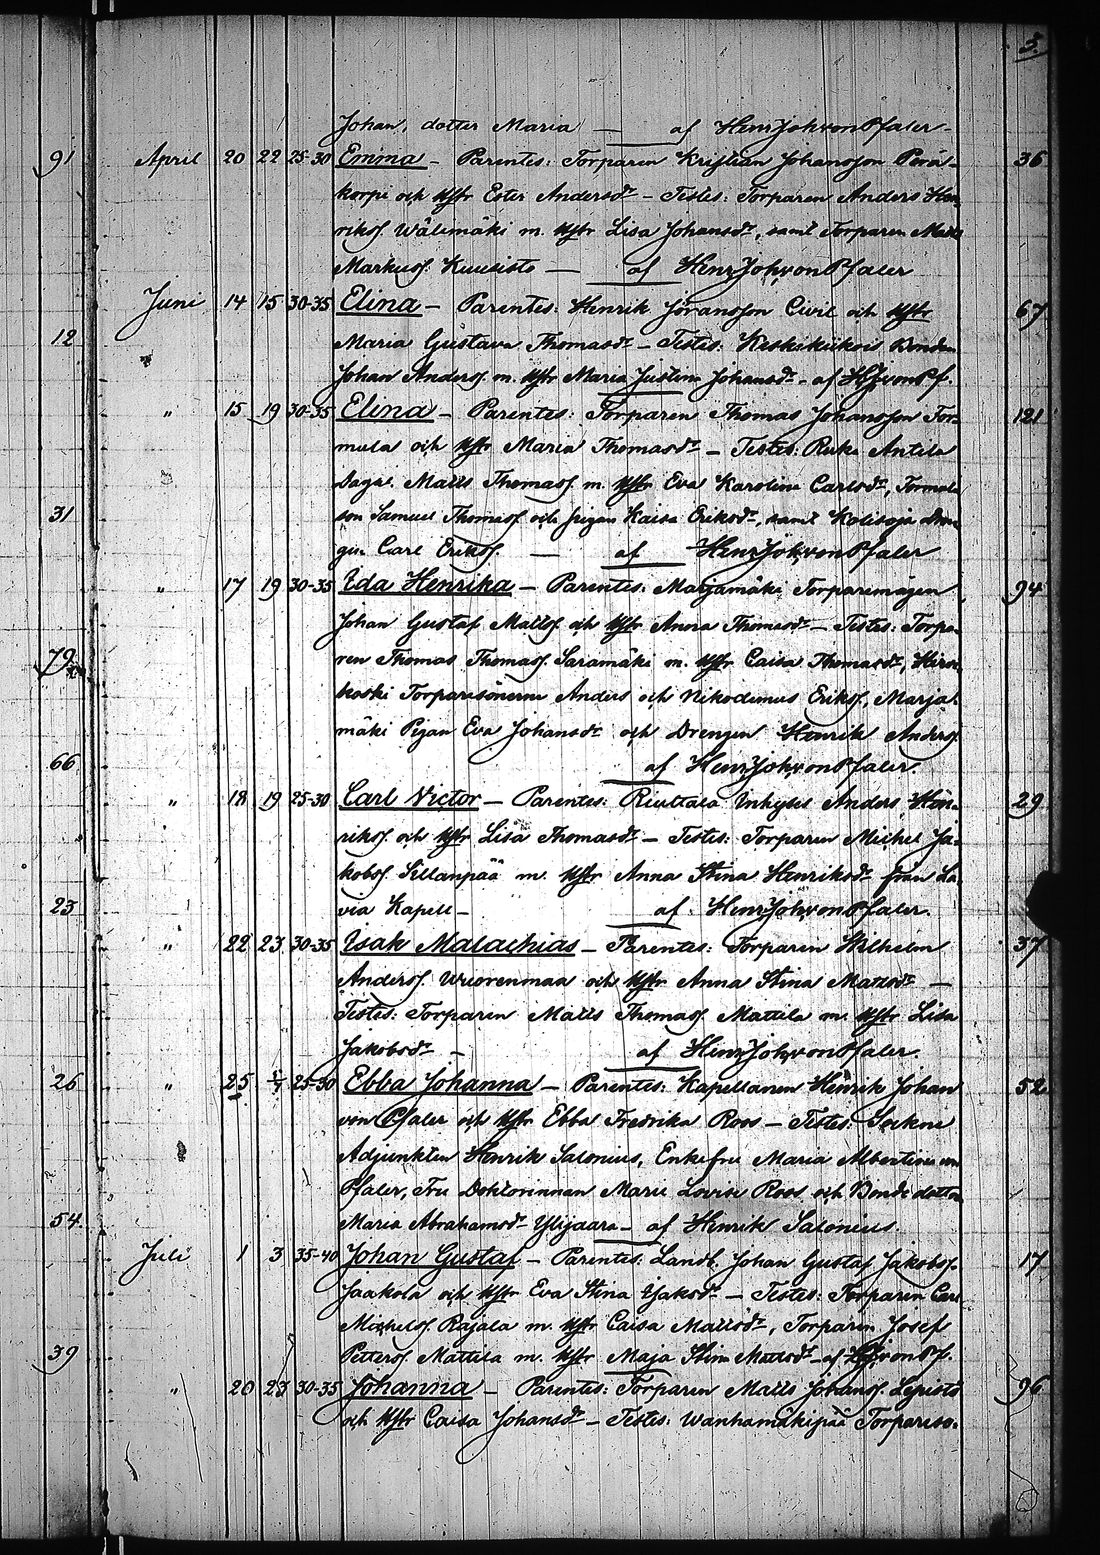 5.
Johan, dotter Maria — af HenrJohvonPfaler
91 April 20 22 25-30 Emma — Parentes: Torparen Kristian Johansson Perä- 36
korpi och Hstr Ester Andersdr — Testes: Torparen Anders Hen-
rikss. Wälimäki m. Hstr Lisa Johansdr, samt Torparen Matts
Markuss. Kuusisto — af HenrJohvonPfaler
Juni 14 15 30-35 Elina — Parentes: Henrik Jöransson Civil och Hstr 67
12 Maria Gustava Thomasdr — Testes: Keskikukois Bonden
Johan Anderss. m. Hstr Maria Justina Johansdr — af HJvonPf.
" 15 19 30-35 Elina — Parentes: Torparen Thomas Johansson Tor- 121
mula och Hstr Maria Thomasdr — Testes: Antila
Matts Thomass. m. Hstr Eva Karolina Carlsdr,
31 son Samuel Thomass. och pigan Kaisa Eriksdr, samt Kolisoja Dren-
gen Carl Erikss. — af HenrJohvonPfaler
" 17 19 30-35 Ida Henrika — Parentes: Marjamäki Torparemågen 94
Johan Gustaf Mattss. och Hstr Anna Thomasdr — Testes: Torpa-
79 ren Thomas Thomass. Saramäki m. Hstr Caisa Thomasdr,
koski Torparesönerne Anders och Nikodemus Erikss., Marja-
mäki Pigan Eva Johansdr och Drengen Henrik Anderss.
66 af HenrJohvonPfaler.
" 18 19 25-30 Carl Victor — Parentes: Riuttala Inhyses Anders Hen- 29
rikss. och Hstr Lisa Thomasdr — Testes: Torparen Michel Ja-
kobss. Sillanpää m. Hstr Anna Stina Henriksdr från La-
23 via Kapell — af HenrJohvonPfaler.
" 22 23 30-35 Isak Malachias — Parentes: Torparen Wilhelm 37
Anderss. Wuorenmaa och Hstr Anna Stina Mattsdr —
Testes: Torparen Matts Thomass. Mattila m. Hstr Lisa
Jakobsdr — af HenrJohvonPfaler.
26 " 25 25-30 Ebba Johanna — Parentes: Kapellanen Henrik Johan 52
von Pfaler och Hstr Ebba Fredrika Roos — Testes: Sockne
Adjunkten Henrik Salonius, Enkefru Maria Albertina von
Pfaler, Fru Doktorinnan Marie Lovise Roos och Bondedottern
54 Maria Abrahamsdr Ylijaara — af Henrik Salonius.
Juli 1 3 35-40 Johan Gustaf — Parentes: Landb. Johan Gustaf Jakobss. 17
Jaakola och Hstr Eva Stina Isaksdr — Testes: Torparen Carl
Michelss. Rajala m. Hstr Caisa Mattsdr, Torparen Josef
39 Petterss. Mattila m. Hstr Maja Stina Mattsdr — af HJvonPf.
" 20 23 30-35 Johanna — Parentes: Torparen Matts Johanss. Lepistö 96
och Hstr Caisa Johansdr — Testes: Wanhamäkipää Torpareso-